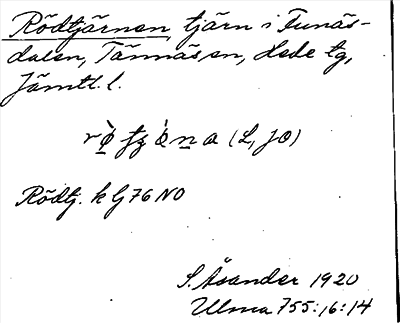 Rödtjärnen, tjärn i Funäs-
dalen, Tännäs sn, Hede tg,
Jämtl. l.
(L, JO)
Rödtj. k Gj 76 NO
S. Åsander 1920
Ulma 755:16:14